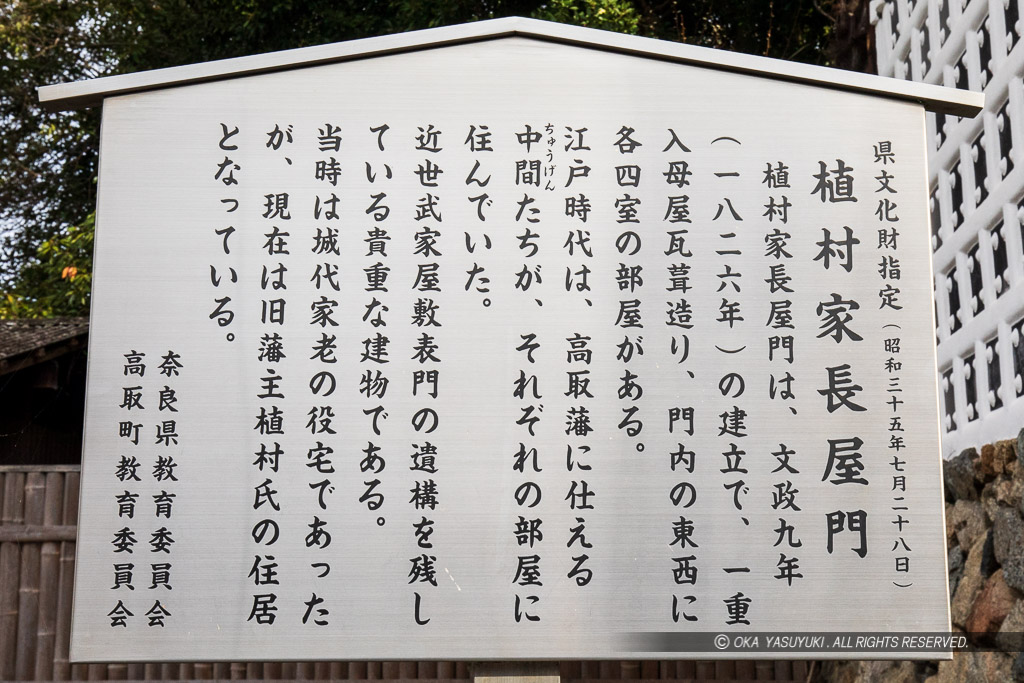 県文化財指定(昭和三十五年七月二十八日)
植村家長屋門
植村家長屋門は、文政九年
(一八二六年)の建立で、一重
入母屋瓦葺造り、門内の東西に
各四室の部屋がある。
江戸時代は、高取藩に仕える
中間たちが、それぞれの部屋に
ちゅうげん
住んでいた。
近世武家屋敷表門の遺構を残し
ている貴重な建物である。
当時は城代家老の役宅であった
が、現在は旧藩主植村氏の住居
となっている。
奈良県教育委員会
高取町教育委員会
© OKA YASUYUKI. ALL RIGHTS RESERVED.